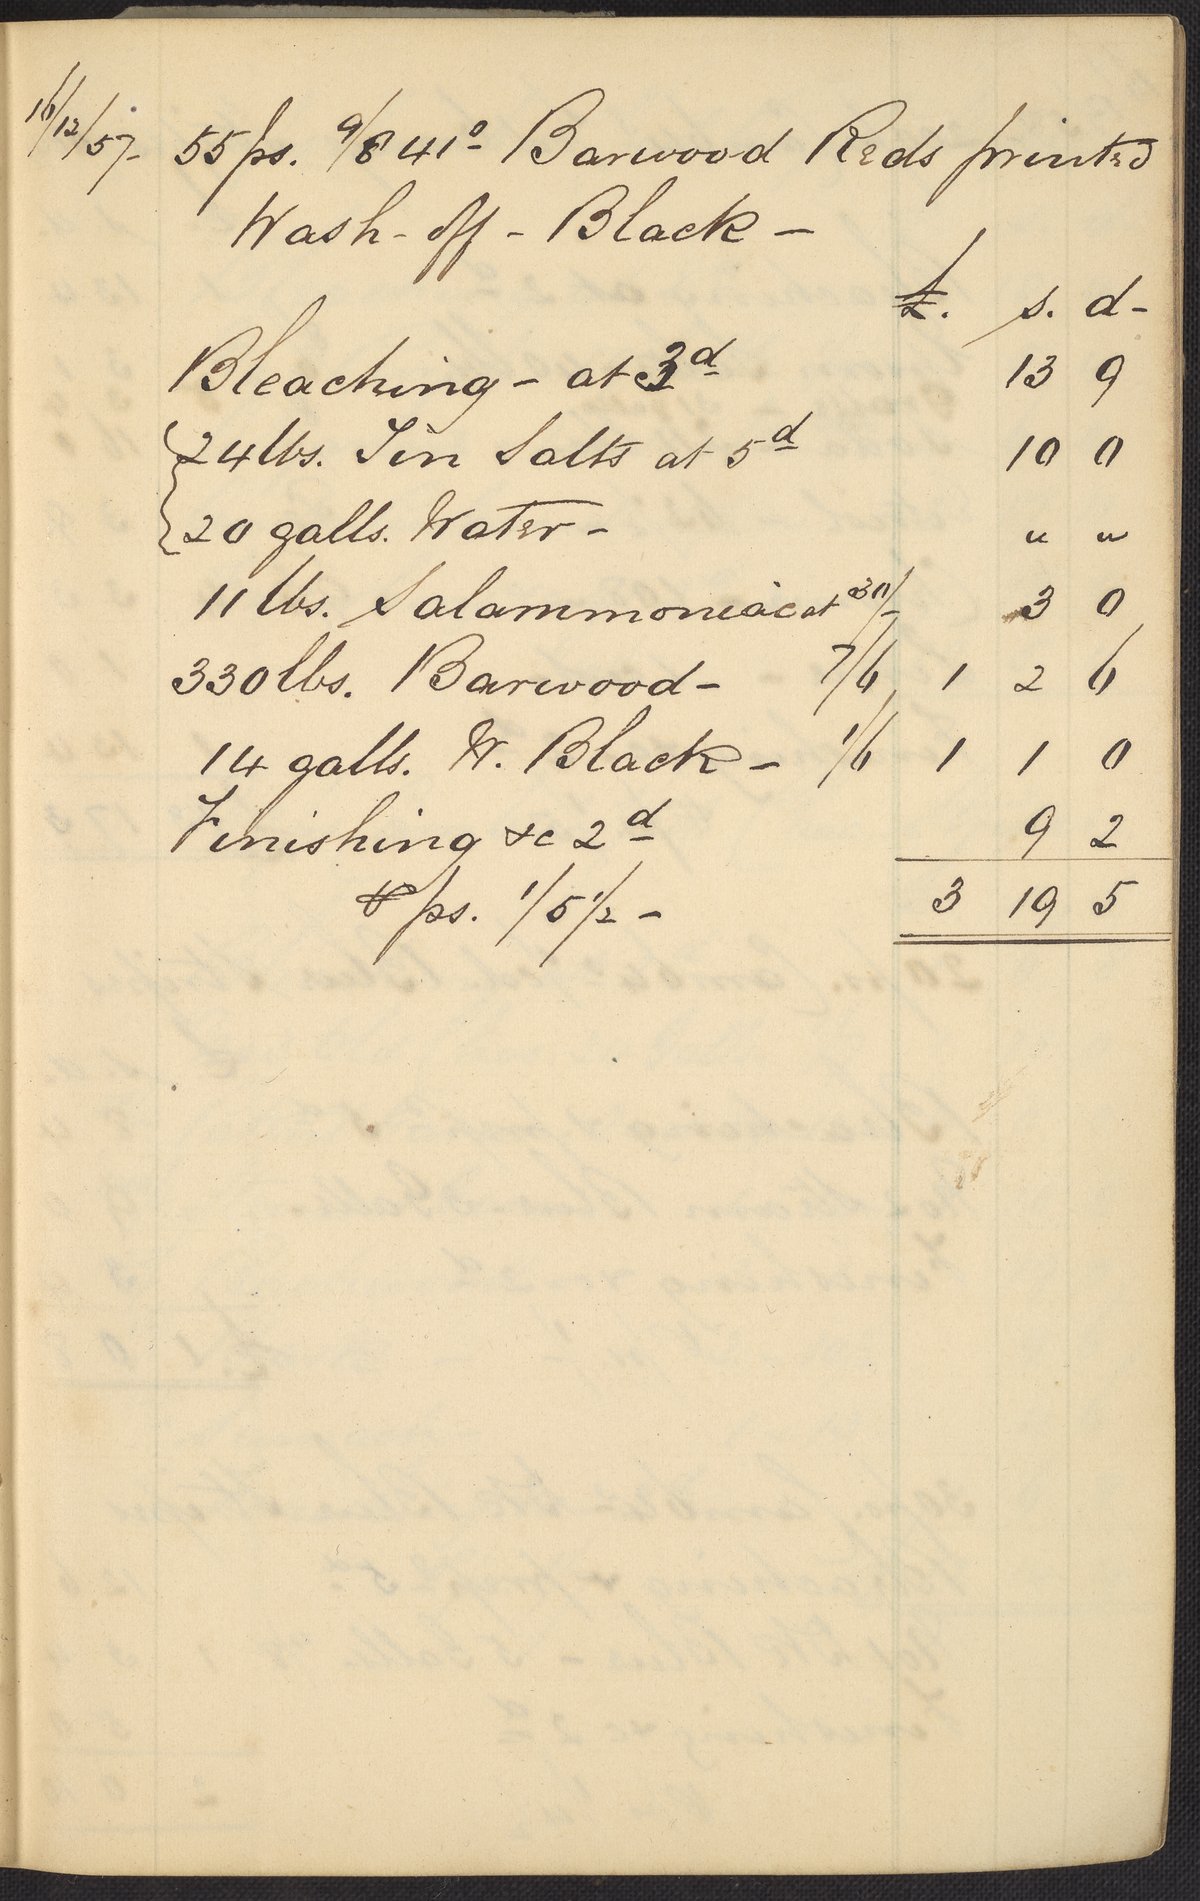 16/12/57- 55ps. 9/8 41º Barwood Reds printed
Wash-off-Black-
£. s. d-
Bleaching - at 3d 13 9
24lbs. Tin Salts at 5d 10 0
20 galls. Water- " "
11 lbs. Salammoniac at 30/- 3 0
330lbs. Barwood- 7/6 1 2 6
14 galls. W. Black - 1/6 1 1 0
Finishing &c 2d 9 2
ps. 1/5 1/2 - 3 19 5